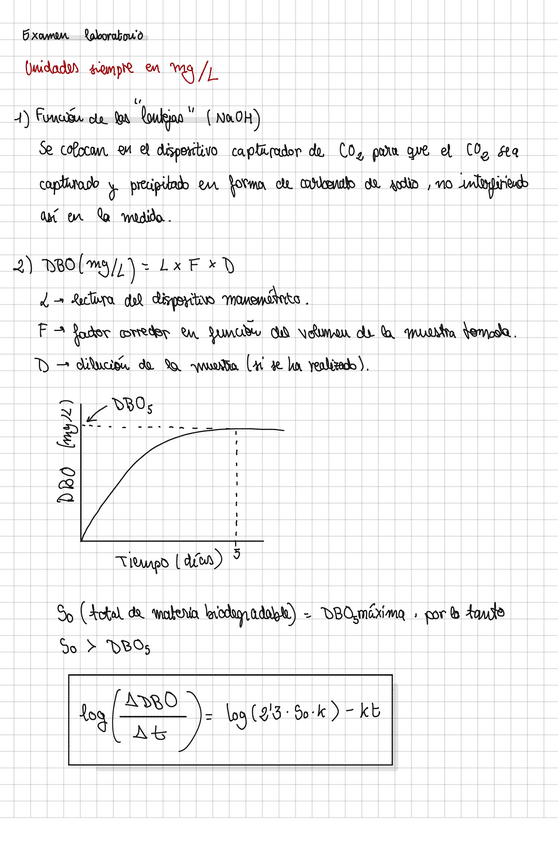 Examen laboratorio
Unidades siempre en mg/L
1) Función de las "lentejas" (NaOH)
Se colocan en el dispositivo capturador de CO₂ para que el CO₂ sea
capturado y precipitado en forma de carbonato de sodio, no interfiriendo
así en la medida.
2) DBO (mg/L) = L × F × D
L → lectura del dispositivo manométrico.
F → factor corrector en función del volumen de la muestra tomada.
D → dilución de la muestra (si se ha realizado).
DBO₅
DBO (mg/L)
Tiempo (días) 5
So (total de materia biodegradable) = DBO₅ máxima, por lo tanto
So > DBO₅
log(ΔDBO/Δt) = log(2'3 · So · k) - kt